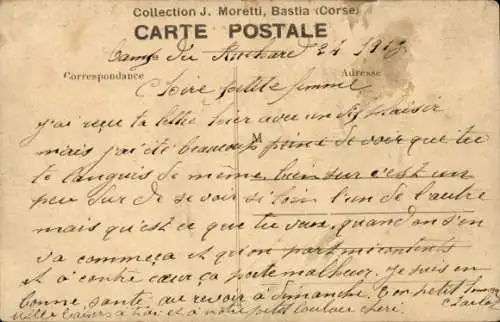 Collection J. Moretti, Bastia (Corse)
CARTE POSTALE
Camp du Ruchard 24 1917
Correspondance
Adresse
Chère petite femme
j'ai reçu ta lettre hier avec un vif plaisir
M
mais j'ai été beaucoup peiné de voir que tu
te languis de même bien sur c'est un
peu dur de se voir si loin l'un de l'autre
mais qu'est ce que tu veux quand on s'en
va commeça et qu'on part mécontents
et à contre cœur ça porte malheur. Je suis en
bonne santé au revoir à dimanche Ton petit
mille baisers à toi et à notre petit chéri